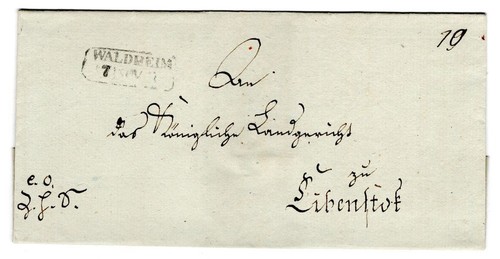 WALDHEIM
7 NOV
19
An
das Königliche Landgericht
zu
Eibenstok
e. o.
Z. H. S.